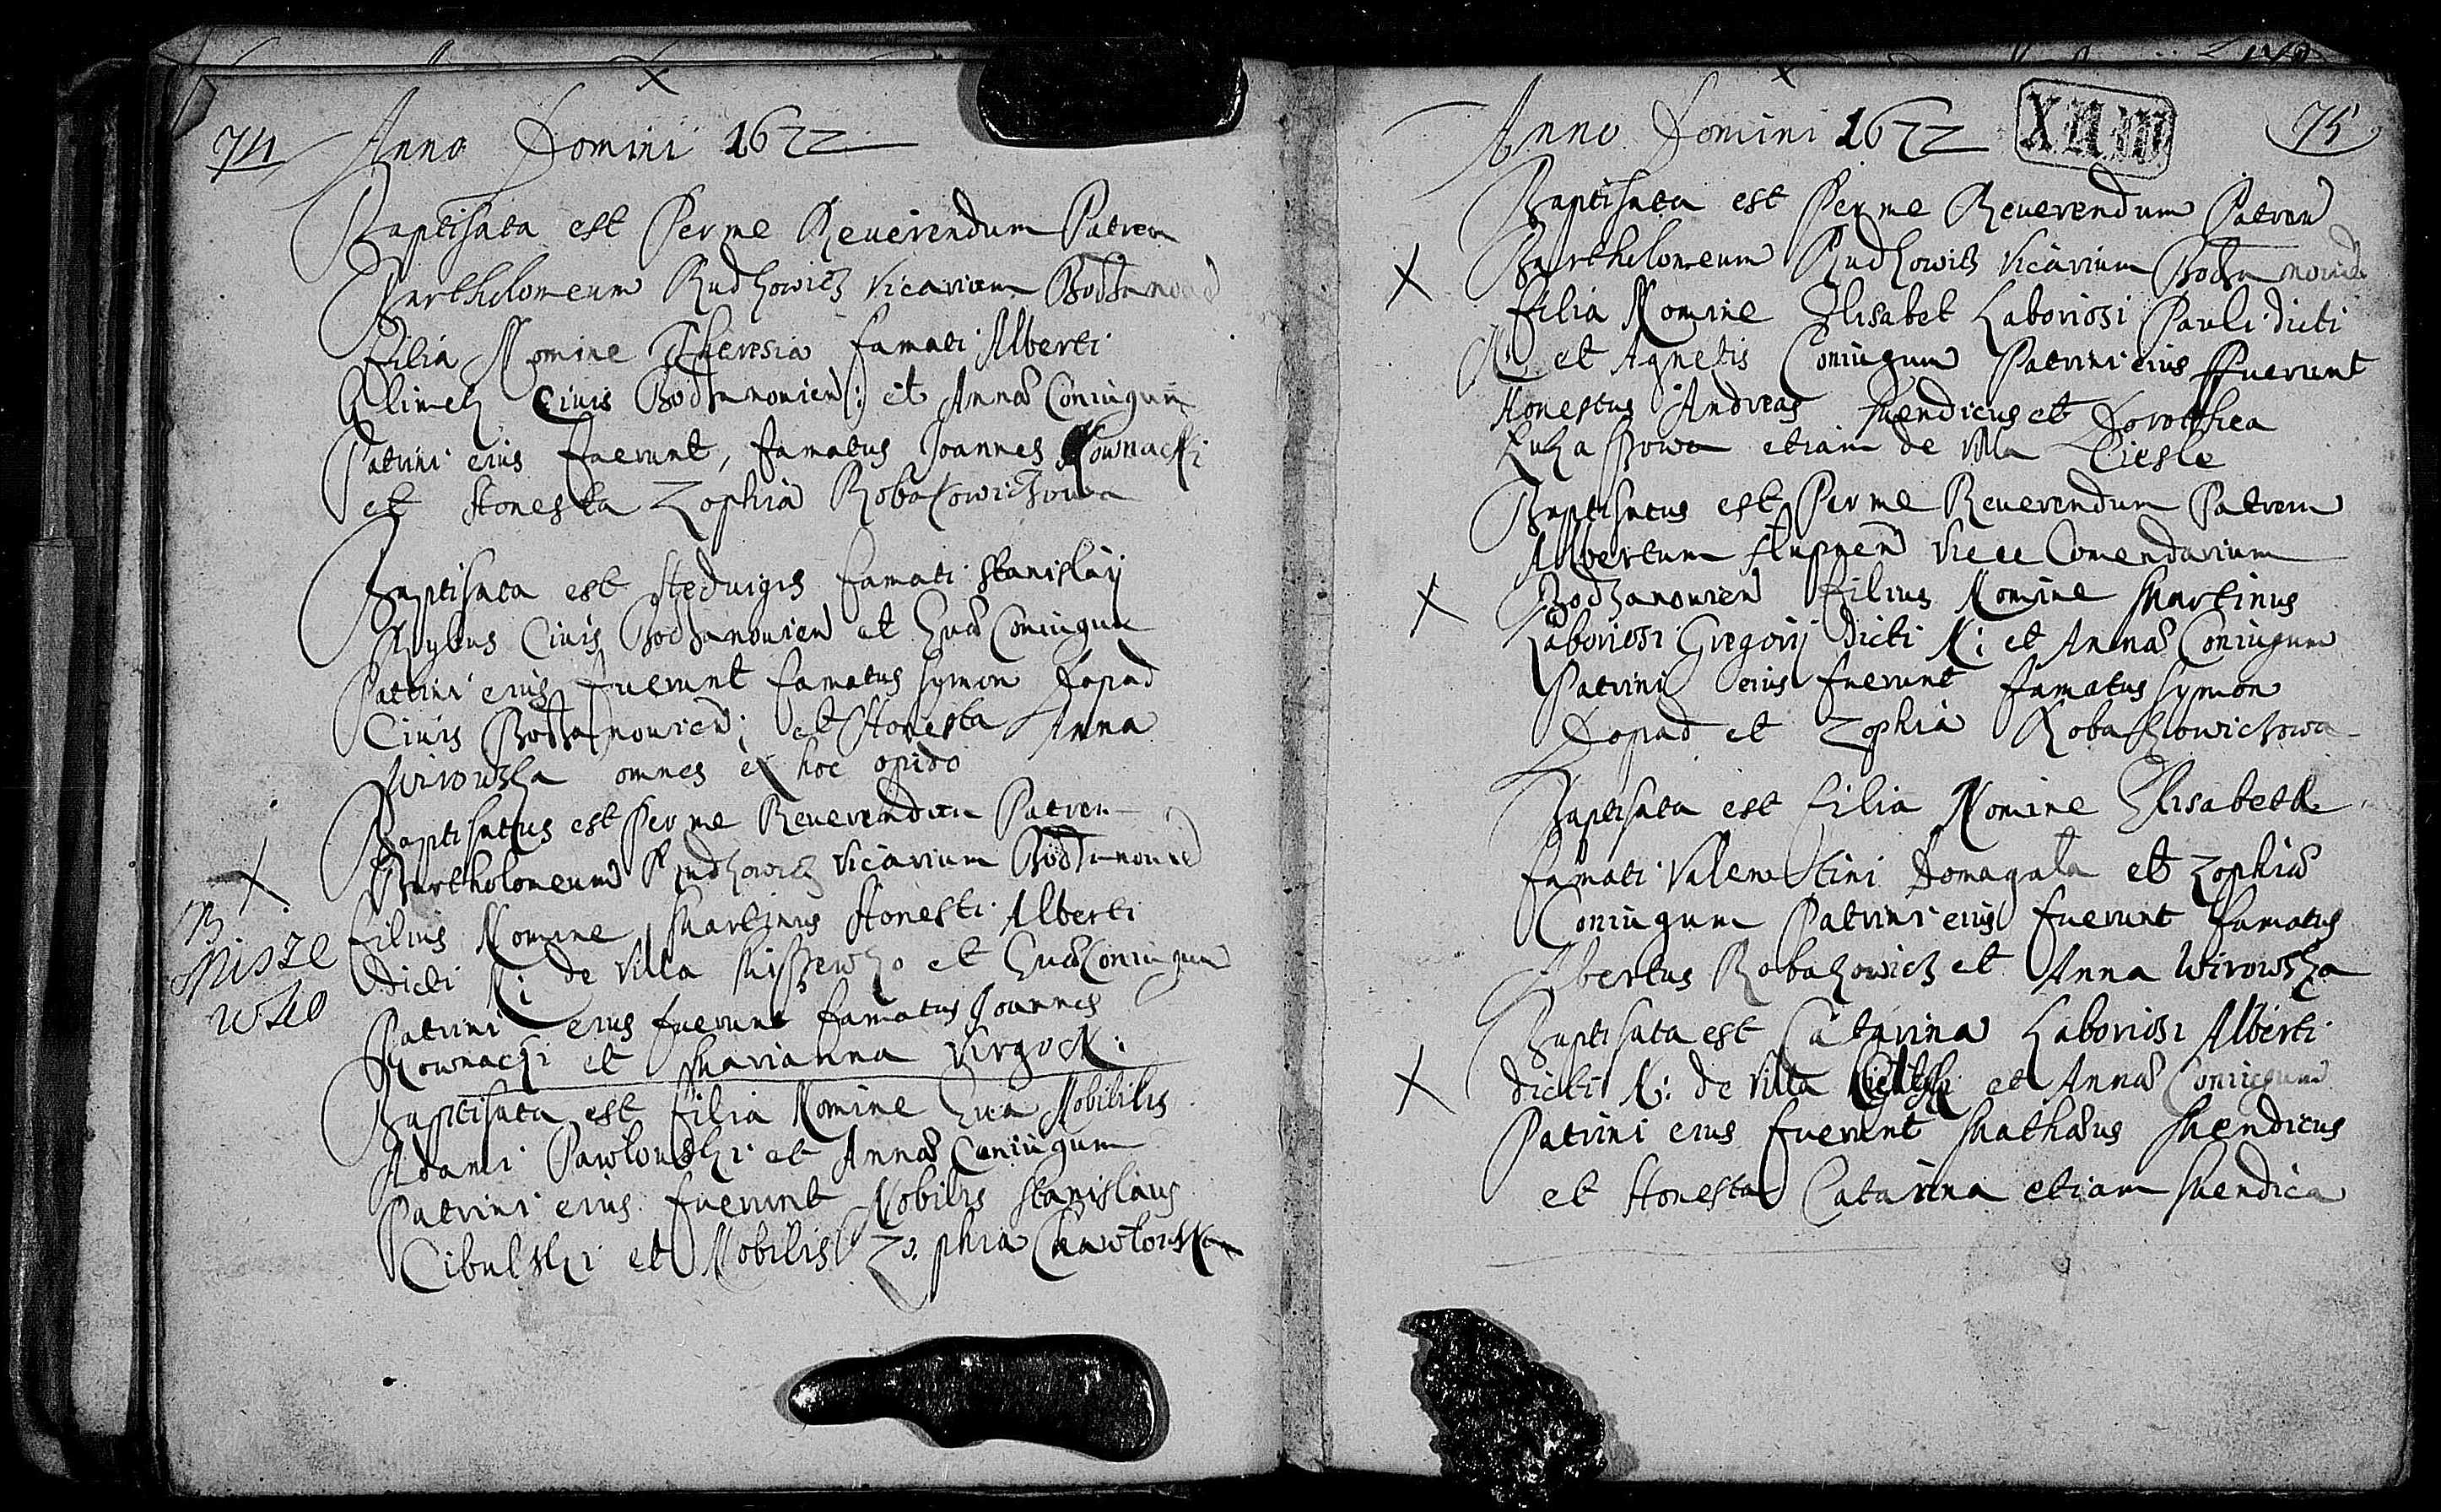 74 Anno Domini 1672
Baptisata est Per me Reuerendum Patrem
Bartholomeum Rudkowicz Vicarium Bodzanouien
filia Nomine Theresia famati Alberti
Klimek Ciuis Bodzanouien: et Annæ Coniugum
Patrini eius fuerunt, famatus Joannes Kownacki
et Honesta Zophia Robakowiczowa
Baptisata est Heduigis famati Stanislaij
Ciuis Bodzanouien et Euæ Coniugum
Patrini eius fuerunt famatus Symon Dopad
Ciuis Bodzanouien: et Honesta Anna
Wirowska omnes ex hoc opido
Baptisatus est Per me Reuerendum Patrem
Bartholomeum Rudkowicz Vicarium Bodzanouien
filius Nomine Martinus Honesti Alberti
dicti N: de Villa Miszewko et Euæ Coniugum
Misze
wko
Patrini eius fuerunt famatus Joannes
Kownacki et Marianna Virgo N:
Baptisata est filia Nomine Eua Nobilis
Adami Pawlowski et Annæ Coniugum
Patrini eius fuerunt Nobilis Stanislaus
Cibulski et Nobilis Zophia
Anno Domini 1672 75
Baptisata est Per me Reuerendum Patrem
Bartholomeum Rudkowicz Vicarium Bodzanouien
filia Nomine Elisabet Laboriosi Pauli dicti
N: et Agnetis Coniugum Patrini eius fuerunt
Honestus Andreas Mendicus et Dorotthea
etiam de Villa Ciesle
Baptisatus est Per me Reuerendum Patrem
Albertum Vice Comendarium
Bodzanouien filius Nomine Martinus
Laboriosi Gregorij dicti N: et Annæ Coniugum
Patrini eius fuerunt famatus Symon
Dopad et Zophia Robakowiczowa
Baptisata est filia Nomine Elisabeth
famati Valentini Domagala et Zophiæ
Coniugum Patrini eius fuerunt famatus
Albertus Robakowicz et Anna Wirowska
Baptisata est Catarina Laboriosi Alberti
dicti N: de Villa et Annæ Coniugum
Patrini eius fuerunt Mathæus Mendicus
et Honesta Catarina etiam Mendica